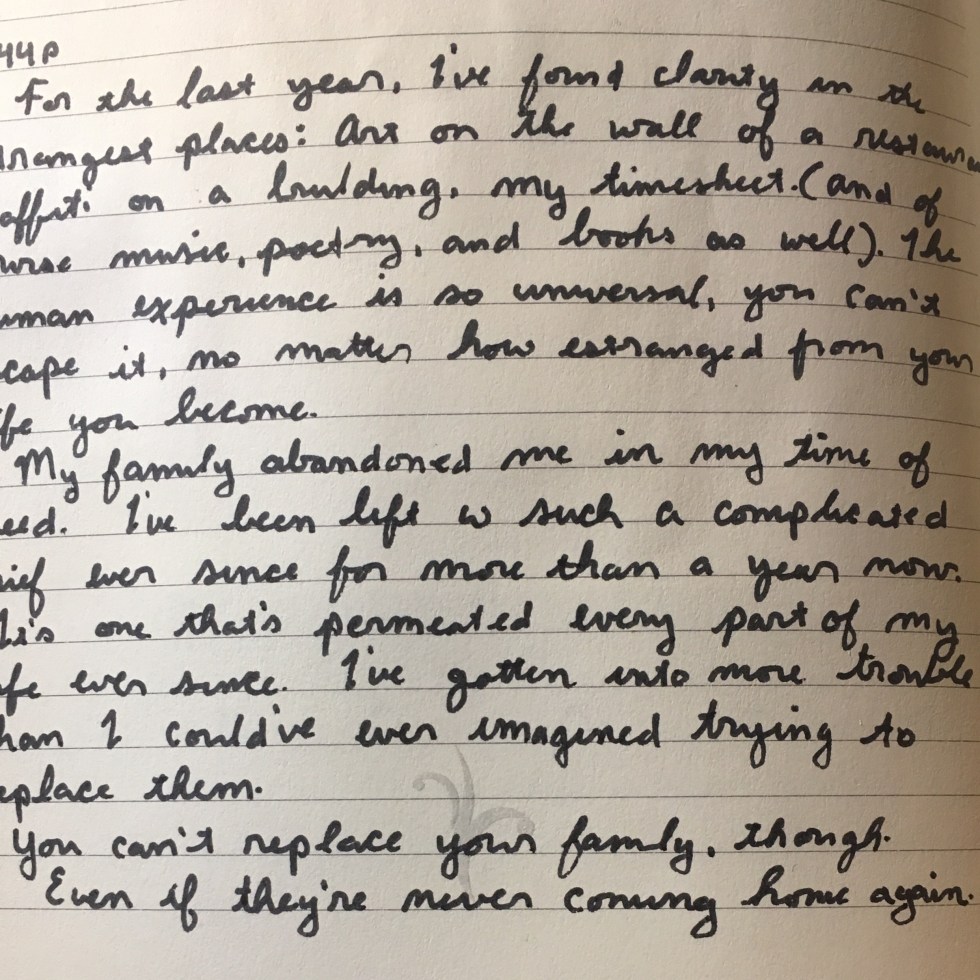 44P
For the last year, I've found clarity in the
trangest places: Art on the wall of a restaura
affiti on a building, my timesheet. (and of
urse music, poetry, and books as well). The
uman experience is so universal, you can't
cape it, no matter how estranged from your
fe you become.
My family abandoned me in my time of
eed. I've been left w such a complicated
ief ever since for more than a year now.
his one that's permeated every part of my
ife ever since. I've gotten into more trouble
han I could've ever imagined trying to
eplace them.
You can't replace your family, though.
Even if they're never coming home again.